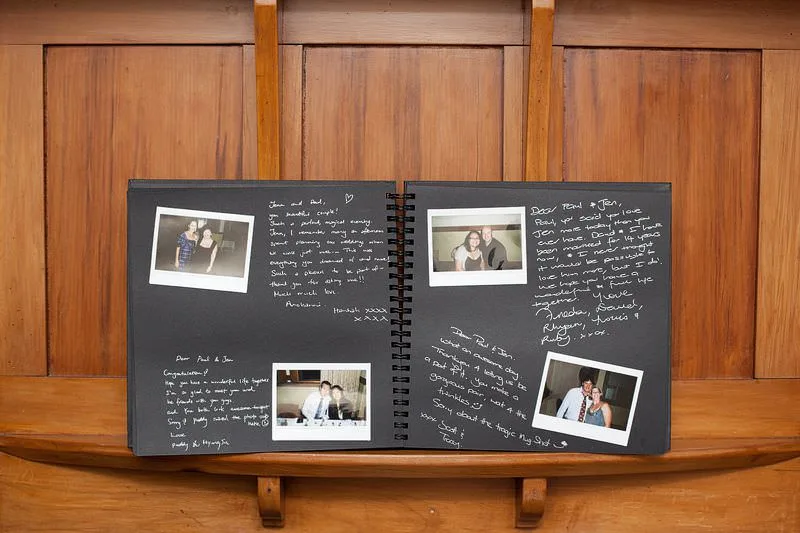 Jenna and Paul,
you beautiful couple!
Such a perfect, magical evening.
Jenna, I remember many an afternoon
spent planning our wedding when
we were just
everything you dreamed of and more
Such a pleasure to be part of -
thank you for asking me!!
Much much love.
Hannah xxxx
xxxx
Dear Paul & Jen
Congratulations!
Hope you have a wonderful life together
I'm so glad to meet you and
be friends with you guys,
and You both look awesome
Sorry paddy ruined the photo
Love
paddy &
Dear Paul & Jen,
Paul, you said you love
Jen more today than you
ever have. David & I have
been married for 14 years
now, & I never thought
it would be possible to
love him more, but I do.
We hope you have a
wonderful & full life
together. Love
David,
Louis &
Ruby. xxox.
Dear Paul & Jen.
What an awesome day.
Thankyou 4 letting us be
a part of it. You make a
gorgeous pair, wait 4 the
twinkles
Sorry about the tragic Mug Shot
xxxx Scott &
Tracy.